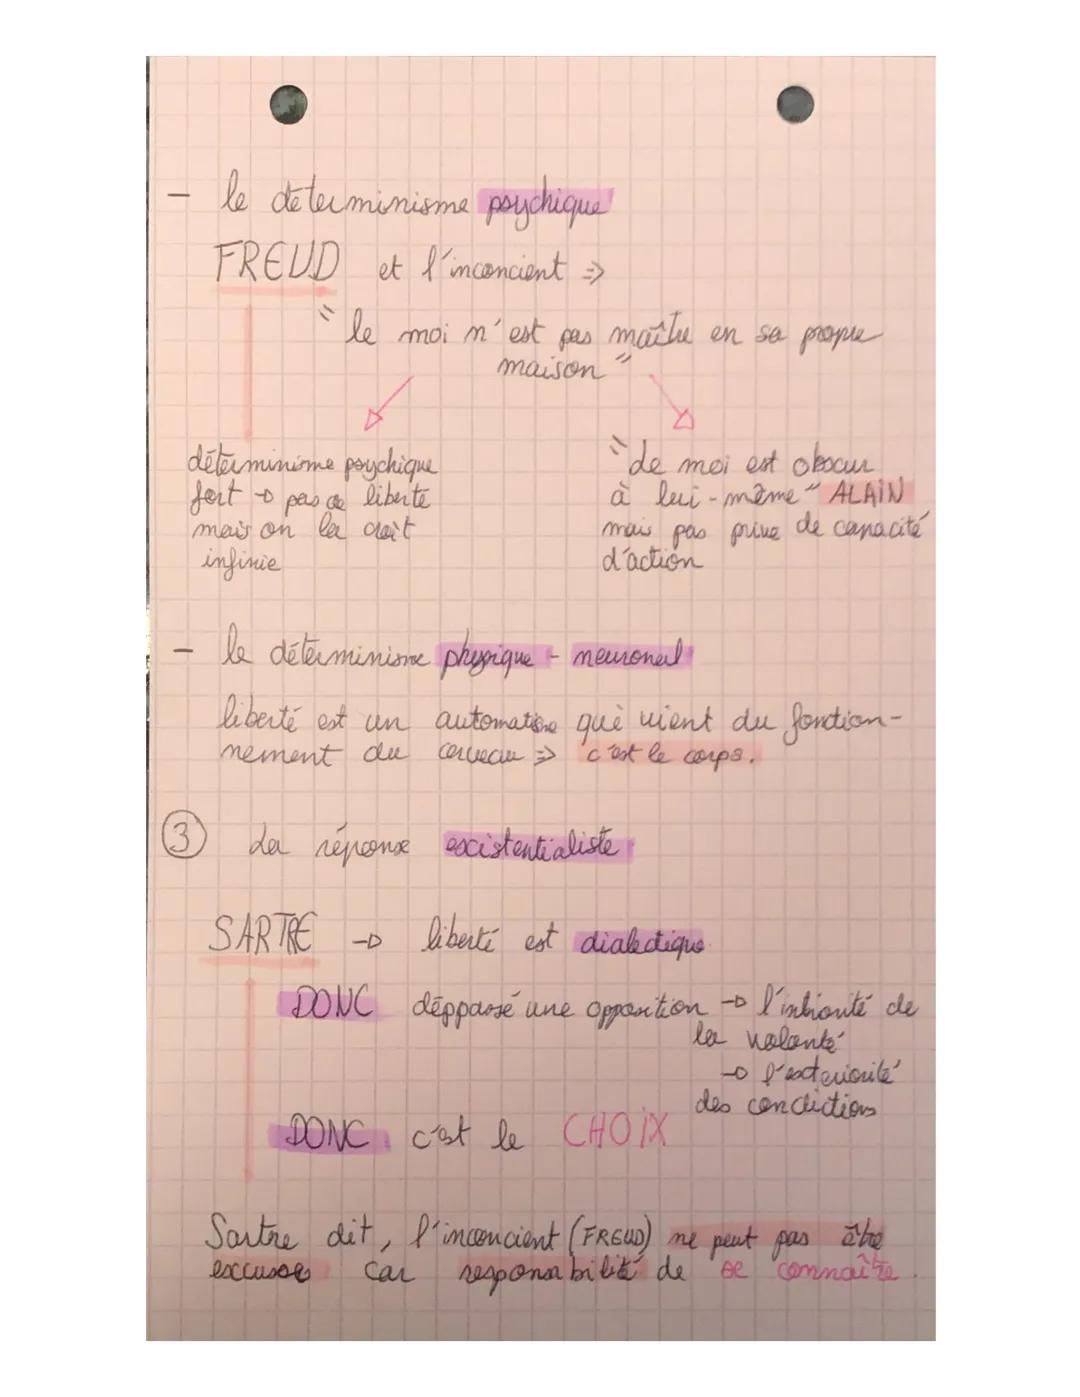 - le déterminisme psychique
FREUD et l'inconcient =>
"le moi n'est pas maître en sa propre
maison"
déterminisme psychique
fort → pas de liberté
mais on la croit
infinie
"Le moi est obscur
à lui-même" ALAIN
mais pas prive de capacité
d'action
- le déterminisme physique - neuronal
liberté est un automatisme qui vient du fonction-
nement du cerveau => c'est le corps.
③ La réponse existentialiste
SARTRE → liberté est dialectique
DONC déppassé une opposition → l'intériorité de
la volonté
→ l'exteriorité
des condictions
DONC c'est le CHOIX
Sartre dit, l'inconcient (FREUD) ne peut pas être
excuses car responsabilité de se connaître.